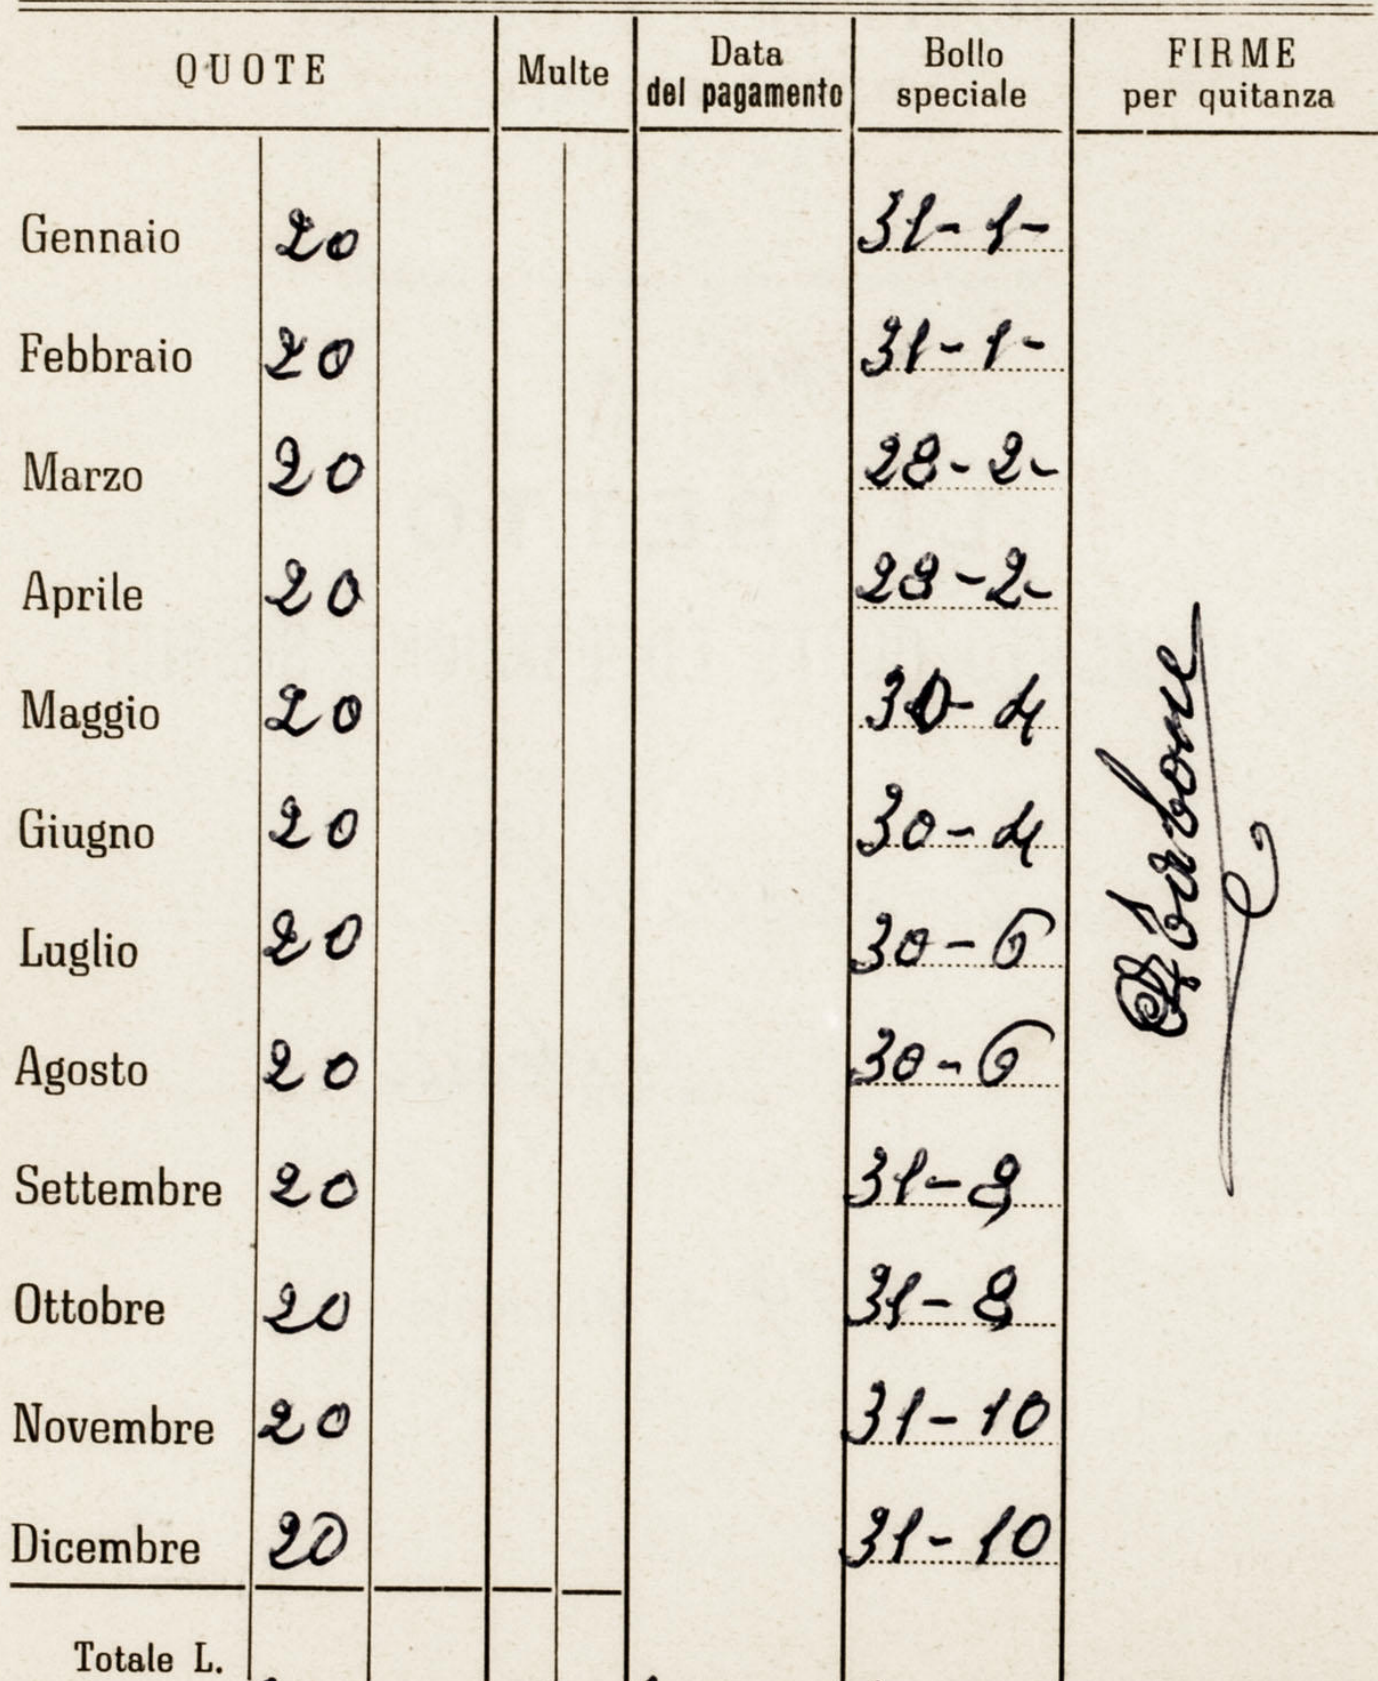 QUOTE Multe Data del pagamento Bollo speciale FIRME per quitanza
Gennaio 20 31-1-
Febbraio 20 31-1-
Marzo 20 28-2-
Aprile 20 28-2-
Maggio 20 30-4
Giugno 20 30-4
Luglio 20 30-6
Agosto 20 30-6
Settembre 20 31-8
Ottobre 20 31-8
Novembre 20 31-10
Dicembre 20 31-10
Totale L.